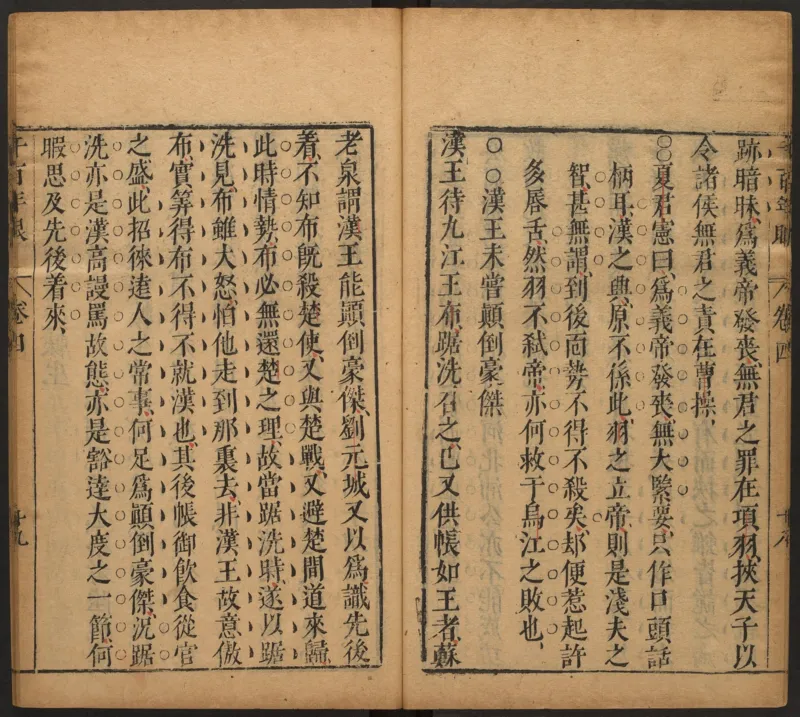 跡暗昧、爲義帝發喪、無君之罪在項羽、挾天子以
令諸侯無君之責、在曹操、
○○夏君憲曰、爲義帝發喪、無大緊要、只作口頭話
柄耳、漢之興、原不係此、羽之立帝、則是淺夫之
智、甚無謂、到後而勢不得不殺矣、却便惹起許
多唇舌、然羽不弑帝、亦何救于烏江之敗也、
○○漢王未嘗顛倒豪傑
漢王待九江王布、踞洗召之、已又供帳如王者、蘇
卷四
老泉謂漢王能顚倒豪傑、劉元城又以爲識先後
着、不知布旣殺楚使、又與楚戰、又避楚間道來歸、
此時情勢、布必無還楚之理、故當踞洗時、遂以踞
洗見布、雖大怒、怕他走到那裏去、非漢王故意傲
布、實筭得布不得不就漢也、其後帳御飮食從官
之盛、此招徠達人之常事、何足爲顚倒豪傑、況踞
洗亦是漢高謾罵故態、亦是豁達大度之一節、何
暇思及先後着來、
千百年眼
卷四
十九